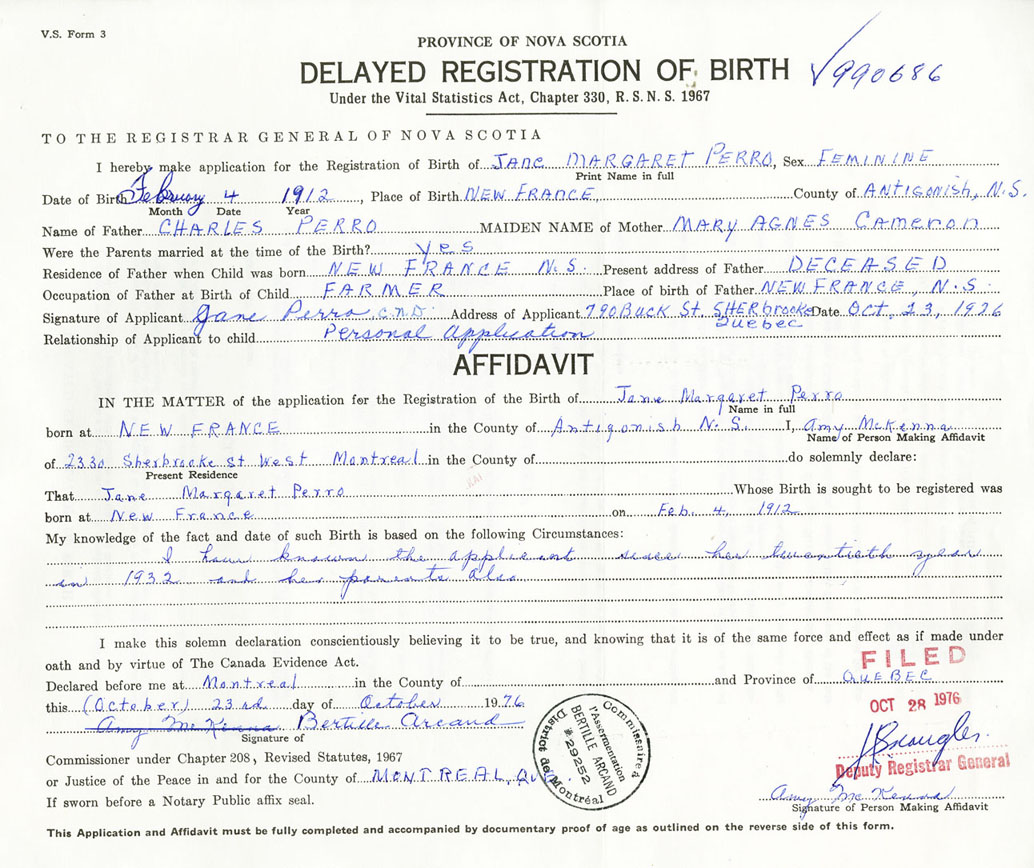 V.S. Form 3
PROVINCE OF NOVA SCOTIA
DELAYED REGISTRATION OF BIRTH ✓990686
Under the Vital Statistics Act, Chapter 330, R.S.N.S. 1967
TO THE REGISTRAR GENERAL OF NOVA SCOTIA
I hereby make application for the Registration of Birth of JANE MARGARET PERRO, Sex FEMININE
Print Name in full
Date of Birth February 4 1912, Place of Birth NEW FRANCE County of ANTIGONISH, N.S.
Month Date Year
Name of Father CHARLES PERRO MAIDEN NAME of Mother MARY AGNES Cameron
Were the Parents married at the time of the Birth? yes
Residence of Father when Child was born NEW FRANCE N.S. Present address of Father DECEASED
Occupation of Father at Birth of Child FARMER Place of birth of Father NEW FRANCE, N.S.
Signature of Applicant Jane Perro C.N.D. Address of Applicant 790 BUCK St. SHERbrooke Date OCT. 23, 1926
Quebec
Relationship of Applicant to child Personal Application
AFFIDAVIT
IN THE MATTER of the application for the Registration of the Birth of Jane Margaret Perro
Name in full
born at NEW FRANCE in the County of Antigonish N.S. I, Amy McKenna
Name of Person Making Affidavit
of 2330 Sherbrooke St West Montreal in the County of do solemnly declare:
Present Residence
That Jane Margaret Perro Whose Birth is sought to be registered was
born at New France on Feb. 4, 1912
My knowledge of the fact and date of such Birth is based on the following Circumstances:
I have known the applicant since her twentieth year
in 1932 and her parents also
I make this solemn declaration conscientiously believing it to be true, and knowing that it is of the same force and effect as if made under
oath and by virtue of The Canada Evidence Act.
FILED
Declared before me at Montreal in the County of and Province of QUEBEC
this (October) 23rd day of October 1976
OCT 28 1976
Amy McKenna Bertille Arcand
Signature of
Commissaire à l'Assermentation
BERTILLE ARCAND
# 29252
District de Montréal
Commissioner under Chapter 208, Revised Statutes, 1967
Deputy Registrar General
or Justice of the Peace in and for the County of MONTREAL, QUE.
Amy McKenna
If sworn before a Notary Public affix seal.
Signature of Person Making Affidavit
This Application and Affidavit must be fully completed and accompanied by documentary proof of age as outlined on the reverse side of this form.